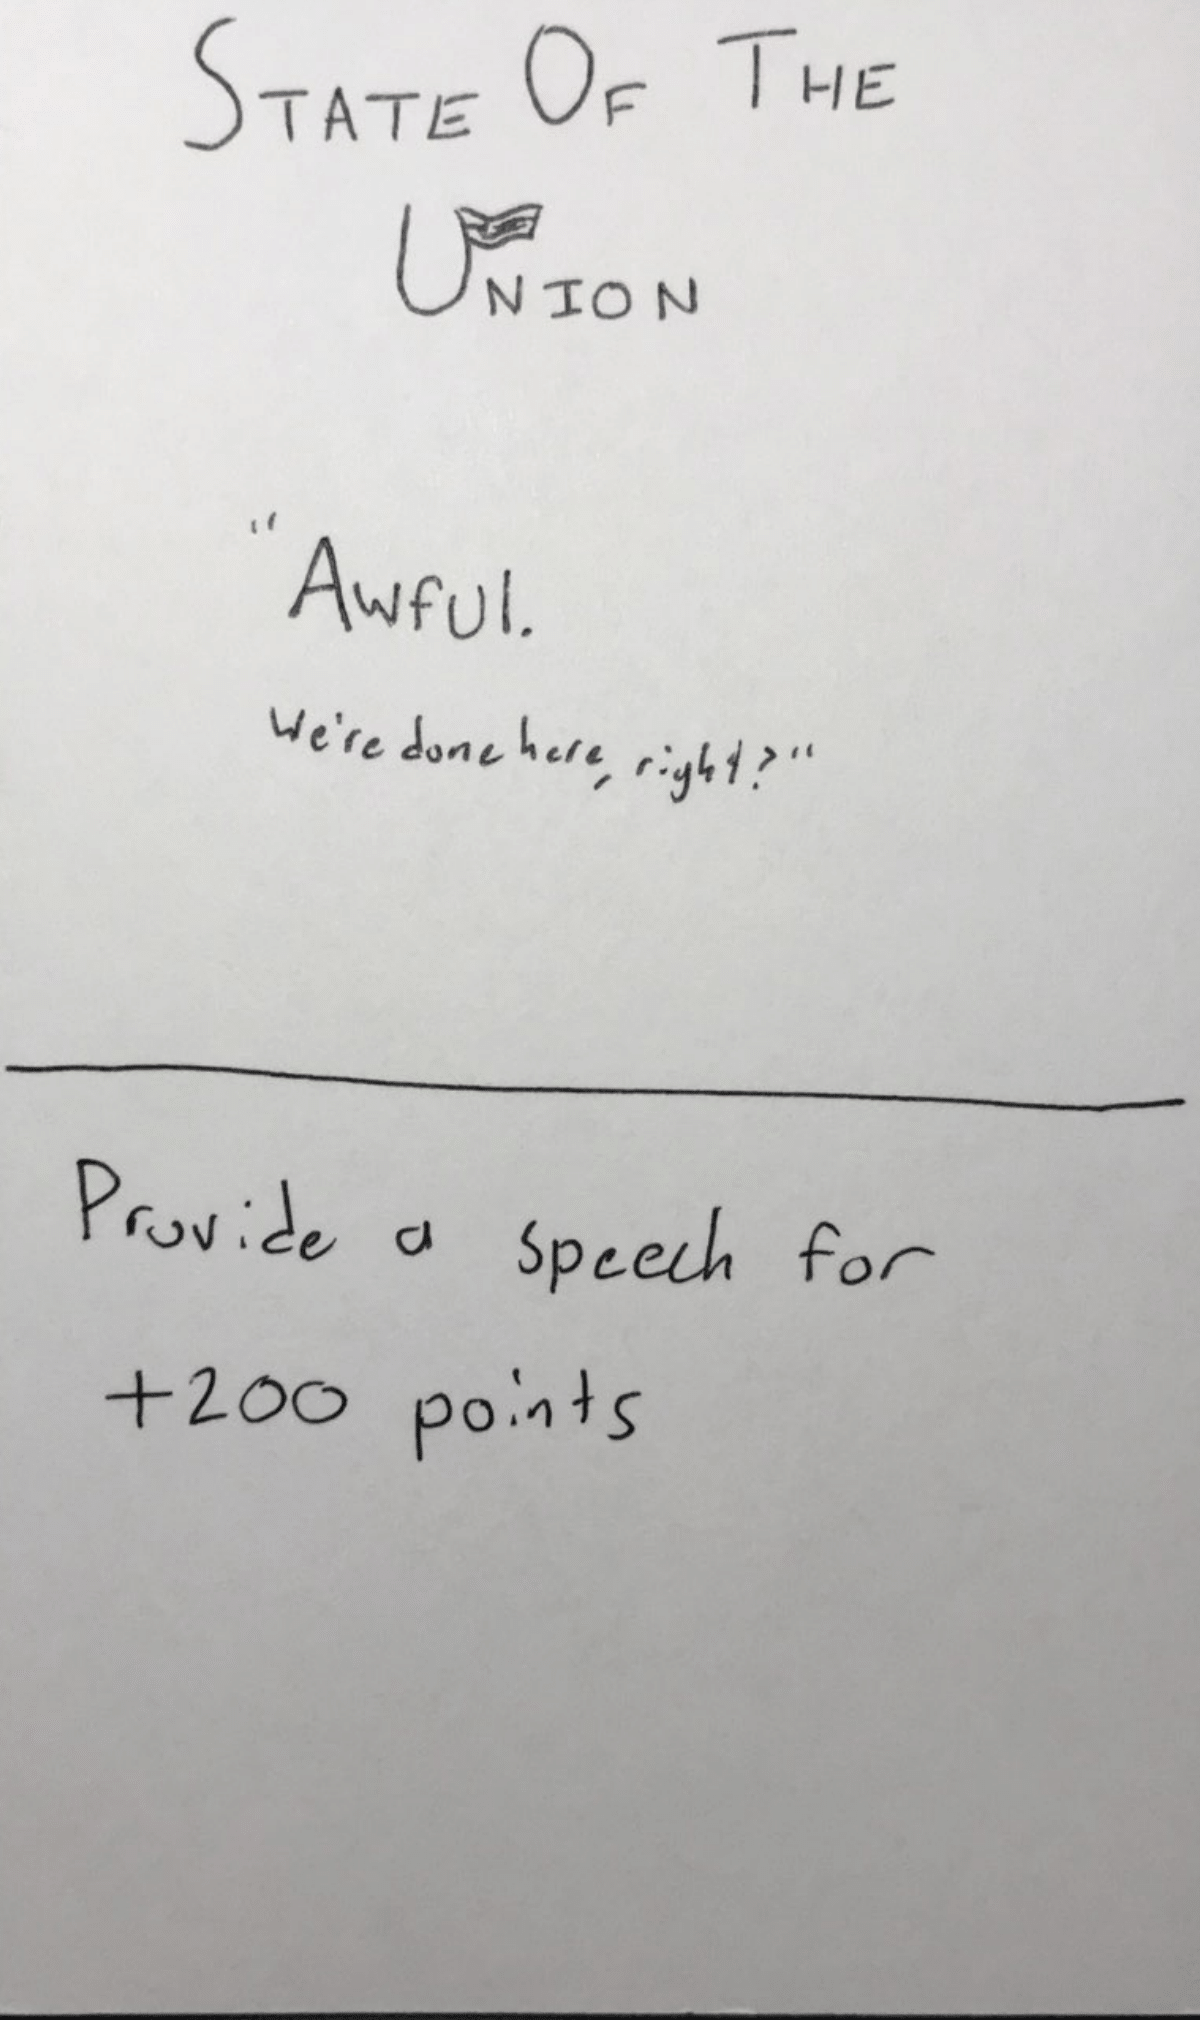 STATE OF THE
UNION
"Awful.
We're done here, right?"
Provide a speech for
+200 points